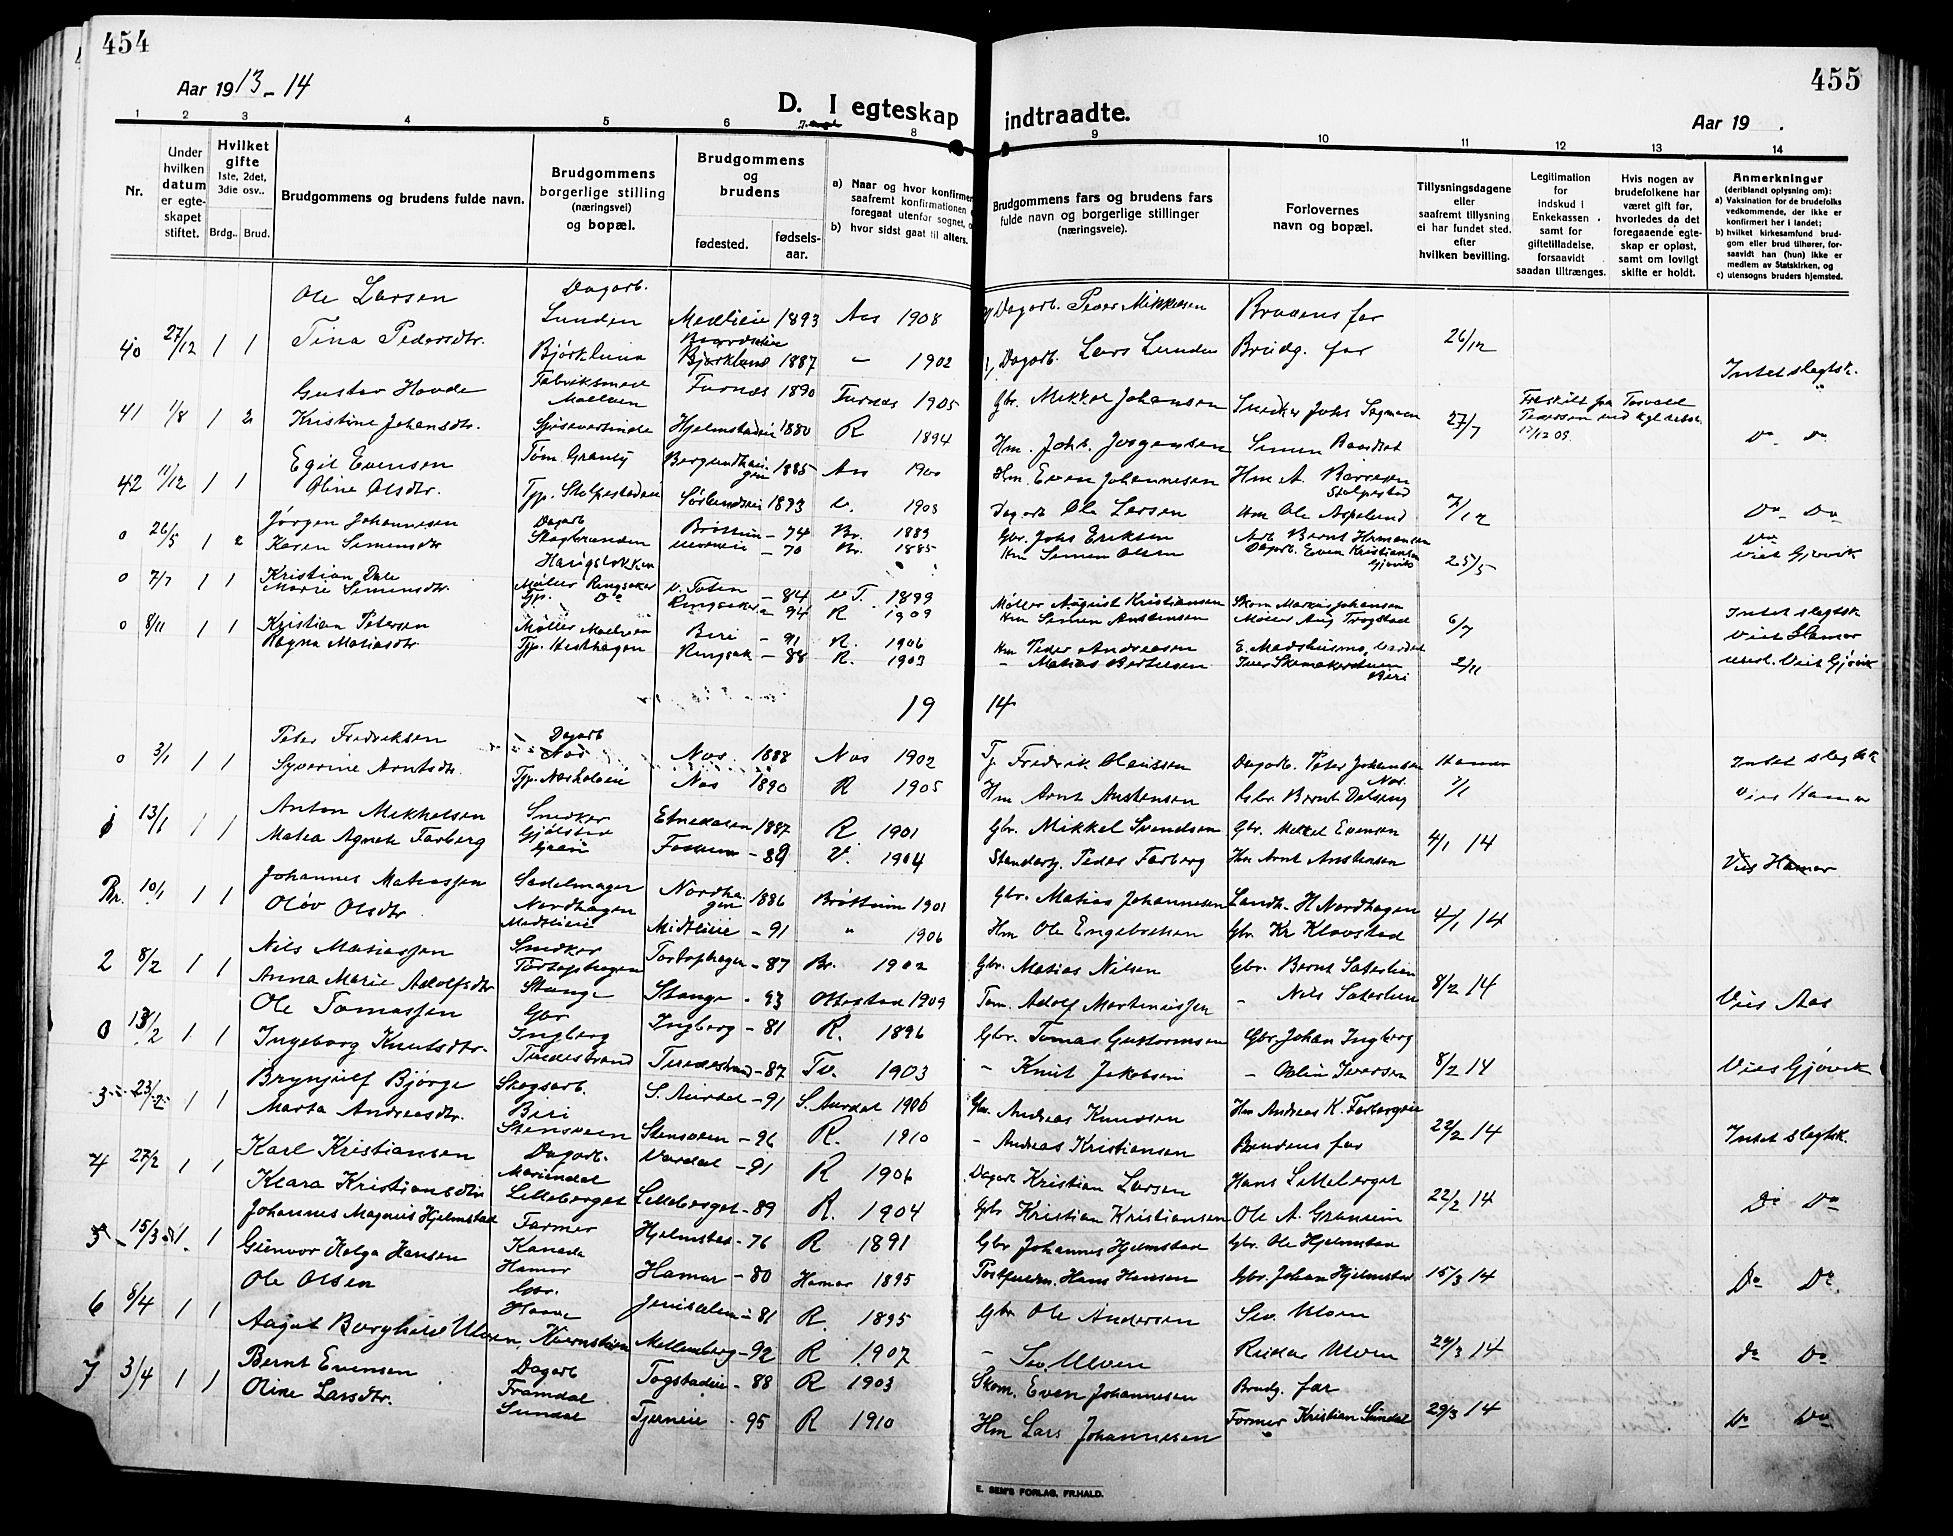 454
455
Aar 1913-14
D. I egteskap indtraadte.
Aar 19 .
1 2 3 4 5 6 8 9 10 11 12 13 14
Nr.
Under hvilken datum er egteskapet stiftet.
Hvilket gifte 1ste, 2det, 3die osv..
Brdg.. Brud.
Brudgommens og brudens fulde navn.
Brudgommens borgerlige stilling (næringsvei) og bopæl.
Brudgommens og brudens
fødested.
fødselsaar.
a) Naar og hvor konfirmer
saafremt konfirmationen
foregaat utenfor sognet,
b) hvor sidst gaat til alters.
Brudgommens fars og brudens fars fulde navn og borgerlige stillinger (næringsveie).
Forlovernes navn og bopæl.
Tillysningsdagene eller saafremt tillysning ei har fundet sted. efter hvilken bevilling.
Legitimation for indskud i Enkekassen samt for giftetilladelse, forsaavidt saadan tiltrænges.
Hvis nogen av brudefolkene har været gift før, hvorledes da det foregaaende egteskap er opløst, samt om lovligt skifte er holdt.
Anmerkninger
(deriblandt oplysning om):
a) Vaksination for de brudefolks vedkommende, der ikke er konfirmert her i landet;
b) hvilket kirkesamfund brudgom eller brud tilhører, forsaavidt han (hun) ikke er medlem av Statskirken, og
c) utensogns bruders hjemsted.
Ole Larsen Dagarb. Lunden Medlieie 1893 Aas 1908 Dagarb. Peder Mikkelsen Brudens far
40 27/12 1 1 Tina Pedersdtr. Bjørklund 1887 " 1902 Dagarb. Lars Lunden Brudg. far 26/12 Intet slegtsk.
41 1/8 1 2 Gustav Hovde Fabriksmed Moelven Furnæs 1890 Furnæs 1905 Gbr. Mikkel Johansen 27/7
Kristine Johansdtr. Hjelmstadeie 1880 R 1894 Hm. Joh. Jørgensen Do Do
42 11/12 1 1 Egil Evensen Tøm. Granly 1885 Aas 1900 Hm. Even Johannesen Hm A. Stolpestad
Oline Olsdtr. Tjp. Stolpestadeie Sørlundeie 1893 V. 1903 Dagarb Ole Larsen Hm Ole Aspelund 7/12 Do Do
0 26/5 1 2 Jørgen Johannesen Dagarb Brøttum - 74 Br. 1889 Gbr. Johs Eriksen Arb. Bernt Hermansen Do
Karen Simensdtr Haugsbakken - 70 Br. 1885 Hm Simen Olsen Dagarb. Even Kristiansen Gjøvik 25/5 viet Gjøvik
0 7/7 1 1 Kristian Dale Møller Ringsaker V. Toten - 84 V T. 1899 Møller August Kristiansen Skom Markus Johansen Intet slegtsk
Marie Simensdtr. Tjp. Do Ringsaker - 94 R 1909 Hm Simen Anstensen Møller Aug Trogstad 6/7 Viet Hamar
0 8/11 1 1 Kristian Petersen Møller Moelven Beri - 91 R. 1906 Hm Peder Andreasen
Ragna Matiasdtr Tjp. Hesthagen Ringsak - 88 R. 1903 - Matias Bertelsen Beri 2/11 Viet Gjøvik
19 14
0 3/1 1 1 Peter Fredriksen Dagarb Nes Nes 1888 Nes 1902 Tj Fredrik Clausen Dagarb. Peter Johansen Nes. Hamar Intet slegtsk
Syverine Arntsdtr. Tjp. Nes 1890 R 1905 Hm Arnt Anstensen Gbr. Bernt 7/1 Viet Hamar
1 13/1 1 1 Anton Mikkelsen Snedker Etnedalen 1887 R 1901 Gbr. Mikkel Svendsen Gbr. Mikkel Evensen
Matea Agnete Farberg - 89 V. 1904 Peder Farberg Hm Arnt Anstensen 4/1 14 Viet Hamar
Br. 10/1 1 1 Johannes Matiassen Sadelmager Nordhagen Nordhagen 1886 Brøttum 1901 Gbr. Matias Johannesen Landh. H Nordhagen
Oløv Olsdtr Medtlieie Midtlieie - 91 " 1906 Hm Ole Engebretsen Gbr. Kr Klovstad 4/1 14
2 8/2 1 1 Nils Matiassen Snedker Tortophagen Tortophagen - 87 Br. 1902 Gbr. Matias Nilsen Gbr. Bernt Saterlien
Anna Marie Adolfsdtr Stange Stange - 93 Ottestad 1909 Tøm. Adolf Martiniussen - Nils Saterlien 8/2 14 Viet Aas
0 13/2 1 1 Ole Tomassen Gbr Ingberg Ingberg - 81 R. 1896 Gbr. Tomas Guttormsen Gbr Johan Ingberg
Ingeborg Knutsdtr. Tvedestrand Tvedestrand - 87 Tv. 1903 - Knut Jakobsen - Iversen 8/2 14 Viet Gjøvik
3 23/2 1 1 Brynjulf Bjørge Skogsarb. Biri S. Aurdal - 91 S. Aurdal 1906 Gbr. Andreas Knudsen Hm Andreas K. Farbergeie
Marta Andreasdtr. Stensveen Stensveen - 96 R. 1910 - Andreas Kristiansen Brudens far 22/2 14 Intet slegtsk.
4 27/2 1 1 Karl Kristiansen Dagarb. Mariendal Vardal - 91 R 1906 Dagarb Kristian Larsen Hans Lilleberget
Klara Kristiansdtr Lilleberget Lilleberget - 89 R. 1904 Gbr Kristian Kristiansen Ole A. Granum 22/2 14 Do Do
5 15/3 1 1 Johannes Magnus Hjelmstad Farmer Kanada Hjelmstad - 76 R 1891 Gbr Johannes Hjelmstad Gbr. Ole Hjelmstad
Gunvor Helga Hansen Hamar Hamar - 80 Hamar 1895 Hans Hansen Gbr. Johan Hjelmstad 15/3 14 Do Do
6 8/4 1 1 Ole Olsen Gbr. Jerusalem - 81 R. 1895 Gbr Ole Andersen Sev. Ulven
Aagot Borghild Ulven, Mellemberg - 92 R 1907 - Sev. Ulven Reidar Ulven 29/3 14 Do Do
7 3/4 1 1 Bernt Evensen Dagarb Framdal Togstadeie - 88 R 1903 Skom. Even Johannesen Brudg. far
Oline Larsdtr. Sundal Tjerneie - 95 R 1910 Hm Lars Johannesen Farmer Kristian Sundal 29/3 14 Do Do
E. SEM'S FORLAG, FR.HALD.